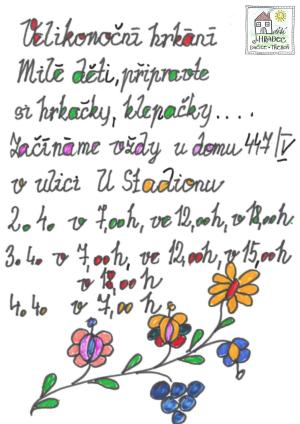 Velikonoční hrkání
Milé děti, připravte
si hrkačky, klepačky....
Začínáme vždy u domu 447/IV
v ulici U Stadionu
2.4. v 7,00h, ve 12,00h, v 18,00h.
3.4. v 7,00h, ve 12,00h, v 15,00h
v 18,00h
4.4. v 7,00 h
HRADEC